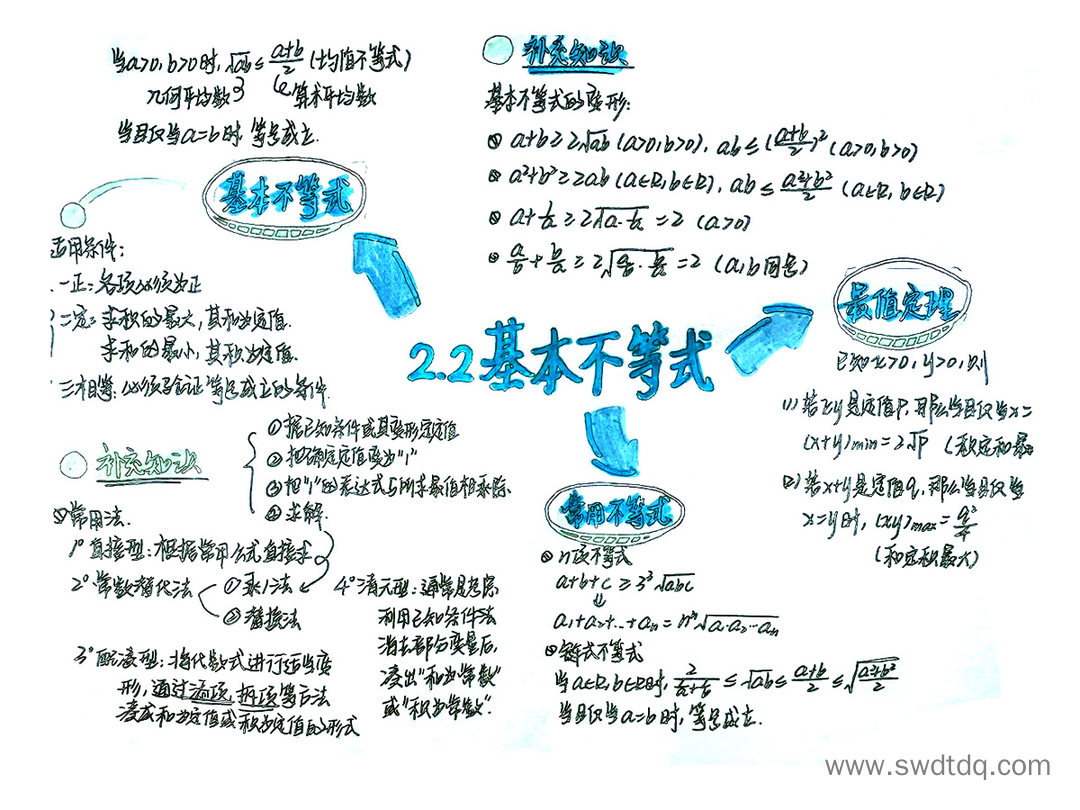 当a>0,b>0时,√ab≤(a+b)/2(均值不等式)
几何平均数 算术平均数
当且仅当a=b时,等号成立.
基本不等式
适用条件:
一正:各项必须为正
二定:求积的最大,其和为定值.
求和的最小,其积为定值.
三相等:必须验证等号成立的条件
补充知识
基本不等式的变形:
① a+b≥2√ab (a>0,b>0), ab≤((a+b)/2)² (a>0,b>0)
② a²+b²≥2ab (a∈R,b∈R), ab≤(a²+b²)/2 (a∈R,b∈R)
③ a+1/a≥2√(a·1/a)=2 (a>0)
④ a/b+b/a≥2√(a/b·b/a)=2 (a,b同号)
2.2基本不等式
最值定理
已知x>0,y>0,则
(1)若xy是定值P,那么当且仅当x=
(x+y)min=2√P (积定和最
(2)若x+y是定值q,那么当且仅当
x=y时,(xy)max=q²/4
(和定积最大)
补充知识
(1)常用法.
1°直接型:根据常用公式直接求
2°常数替代法
①乘1法
②替换法
①据已知条件或其变形定定值
②把确定定值变为"1"
③把"1"的表达式与所求最值相乘除
④求解.
3°配凑型:将代数式进行适当变
形,通过添项,拆项等方法
凑成和为定值或积为定值的形式
4°消元型:通常是考虑
利用已知条件法
消去部分变量后,
凑出"和为常数"
或"积为常数".
常用不等式
① n项不等式
a+b+c≥3³√abc
⇓
a₁+a₂+…+aₙ=nⁿ√a₁·a₂…aₙ
②链式不等式
当a∈R,b∈R时,2/(1/a+1/b)≤√ab≤(a+b)/2≤√((a²+b²)/2)
当且仅当a=b时,等号成立.
www.swdtdq.com